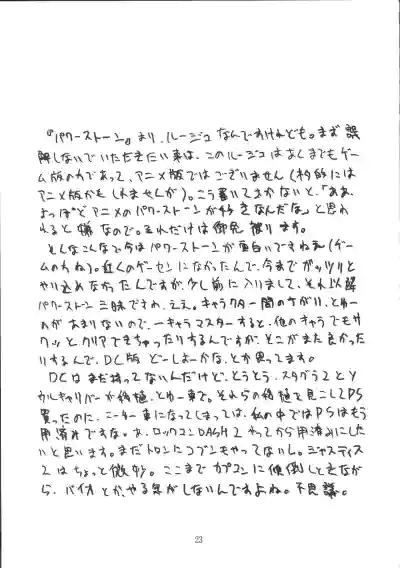 『パワーストーン』より、ルージュなんですけれども。まず誤
解しないでいただきたい事は、このルージュはあくまでもゲー
ム版のわであって、アニメ版ではございません(材的には
アニメ版かもしれませんが)。こう書いておかないと、「ああ、
よっぽどアニメのパワーストーンが好きなんだな」と思わ
れると嫌なので。それだけは御免被ります。
そんなこんなで今はパワーストーンが面白いですねぇ(ゲー
ムのわね)。近くのゲーセンになかったんで、今までガッツリと
やり込めなかったんですが、少し前に入りまして、それ以解
パワーストーン三昧ですわ、ええ。キャラクター間のさがい、とゆー
わがあまりないので、一キャラマスターすると、他のキャラでもサ
クッとクリアできちゃったりするんですが、そこがまた良かった
りするんで、DC版どーしよーかな、とか思ってます。
DCはまだ持ってないんだけど、とうとう、スタグラ2とソ
ウルキャリバーが移植、とゆー事で。それらの移植を見こしてPS
買ったのに、こーゆー事になってしまっては、私の中ではPSはもう
用済みですな。あ、ロックマンDASH2やってから用済みにした
いと思います。まだトロンにコブンもやってないし。ジャスティス
2はちょっと微妙。ここまでカプコンに傾倒しときなが
ら、バイオとか、やる気がしないんですよね。不思議。
23